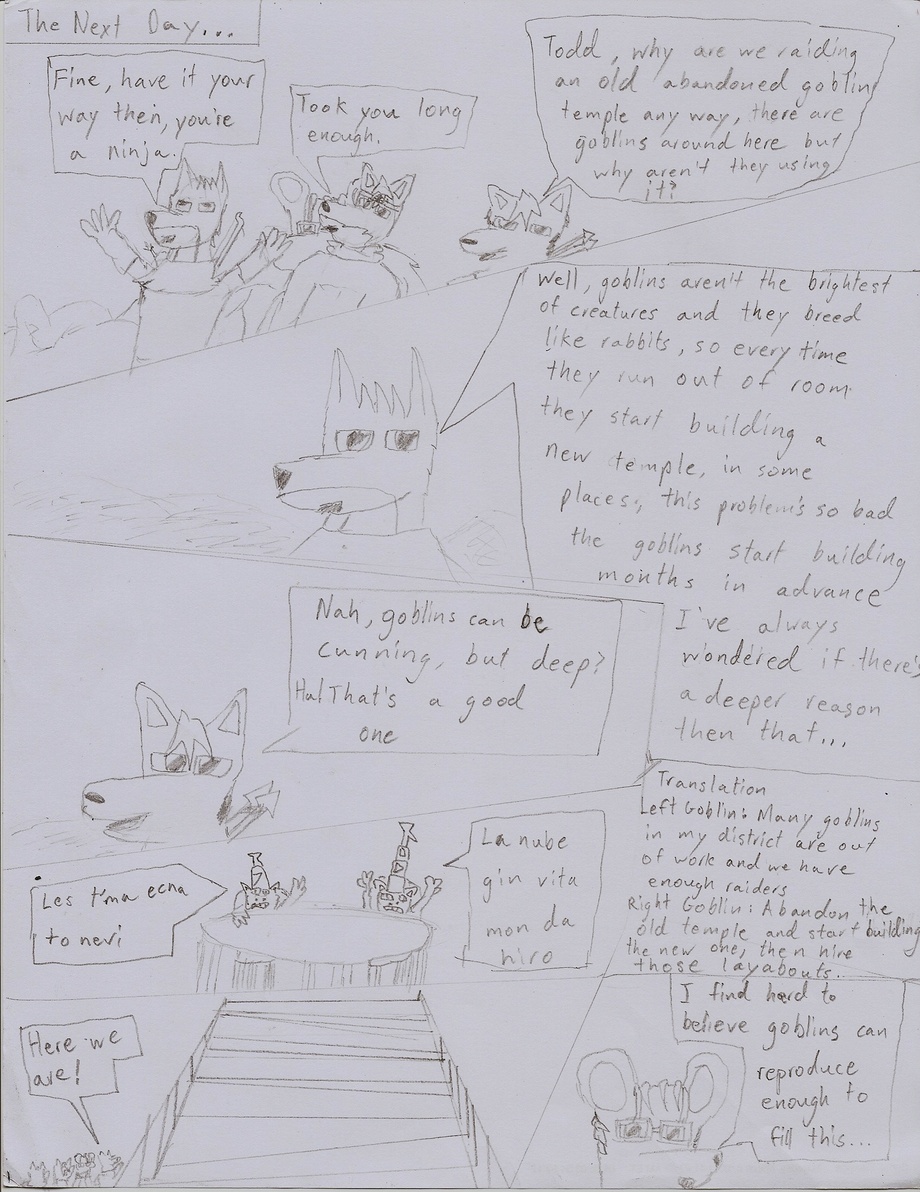 The Next Day...
Fine, have it your
way then, you're
a ninja.
Took you long
enough.
Todd, why are we raiding
an old abandoned goblin
temple any way, there are
goblins around here but
why aren't they using
it?
Well, goblins aren't the brightest
of creatures and they breed
like rabbits, so every time
they run out of room
they start building a
new temple, in some
places, this problem's so bad
the goblins start building
months in advance
I've always
wondered if there's
a deeper reason
then that...
Nah, goblins can be
cunning, but deep?
Ha! That's a good
one
Les t'ma ecna
to nevi
La nube
gin vita
mon da
hiro
Translation
Left Goblin: Many goblins
in my district are out
of work and we have
enough raiders
Right Goblin: Abandon the
old temple and start building
the new one, then hire
those layabouts...
Here we
are!
I find hard to
believe goblins can
reproduce
enough to
fill this...